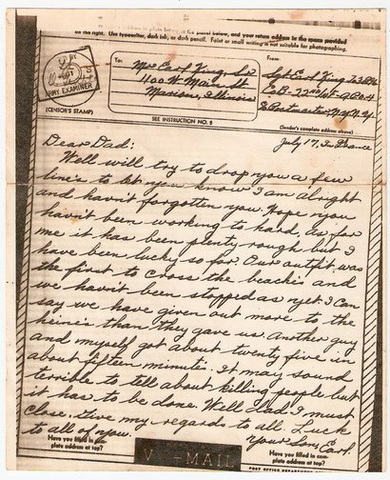 plete address in plain block letters in the panel below, and your return address in the space provided
on the right. Use typewriter, dark ink, or dark pencil. Faint or small writing is not suitable for photographing.
ARMY EXAMINER
(CENSOR'S STAMP)
To:
Mr. Earl King, Sr
400 W. Main St
Marion, Illinois
From:
Sgt Earl King
Postmaster, N.Y. N.Y.
(Sender's complete address above)
SEE INSTRUCTION NO. 2
July 17, In France
Dear Dad:
Well will try to drop you a few
line's to let you know I am alright
and havn't forgotten you. Hope you
havn't been working to hard, as for
me it has been plenty rough but I
have been lucky so far. Our outfit was
the first to cross the beach's and
we havn't been stopped as yet. I can
say we have given out more to the
heine's than they gave us. Another guy
and myself got about twenty five in
about fifteen minute's. It may sound
terrible to tell about killing people but
it has to be done. Well Dad I must
close. Give my regards to all. Luck
to all of you.
Your Son, Earl.
Have you filled in complete address at top?
V-MAIL
Have you filled in complete address at top?